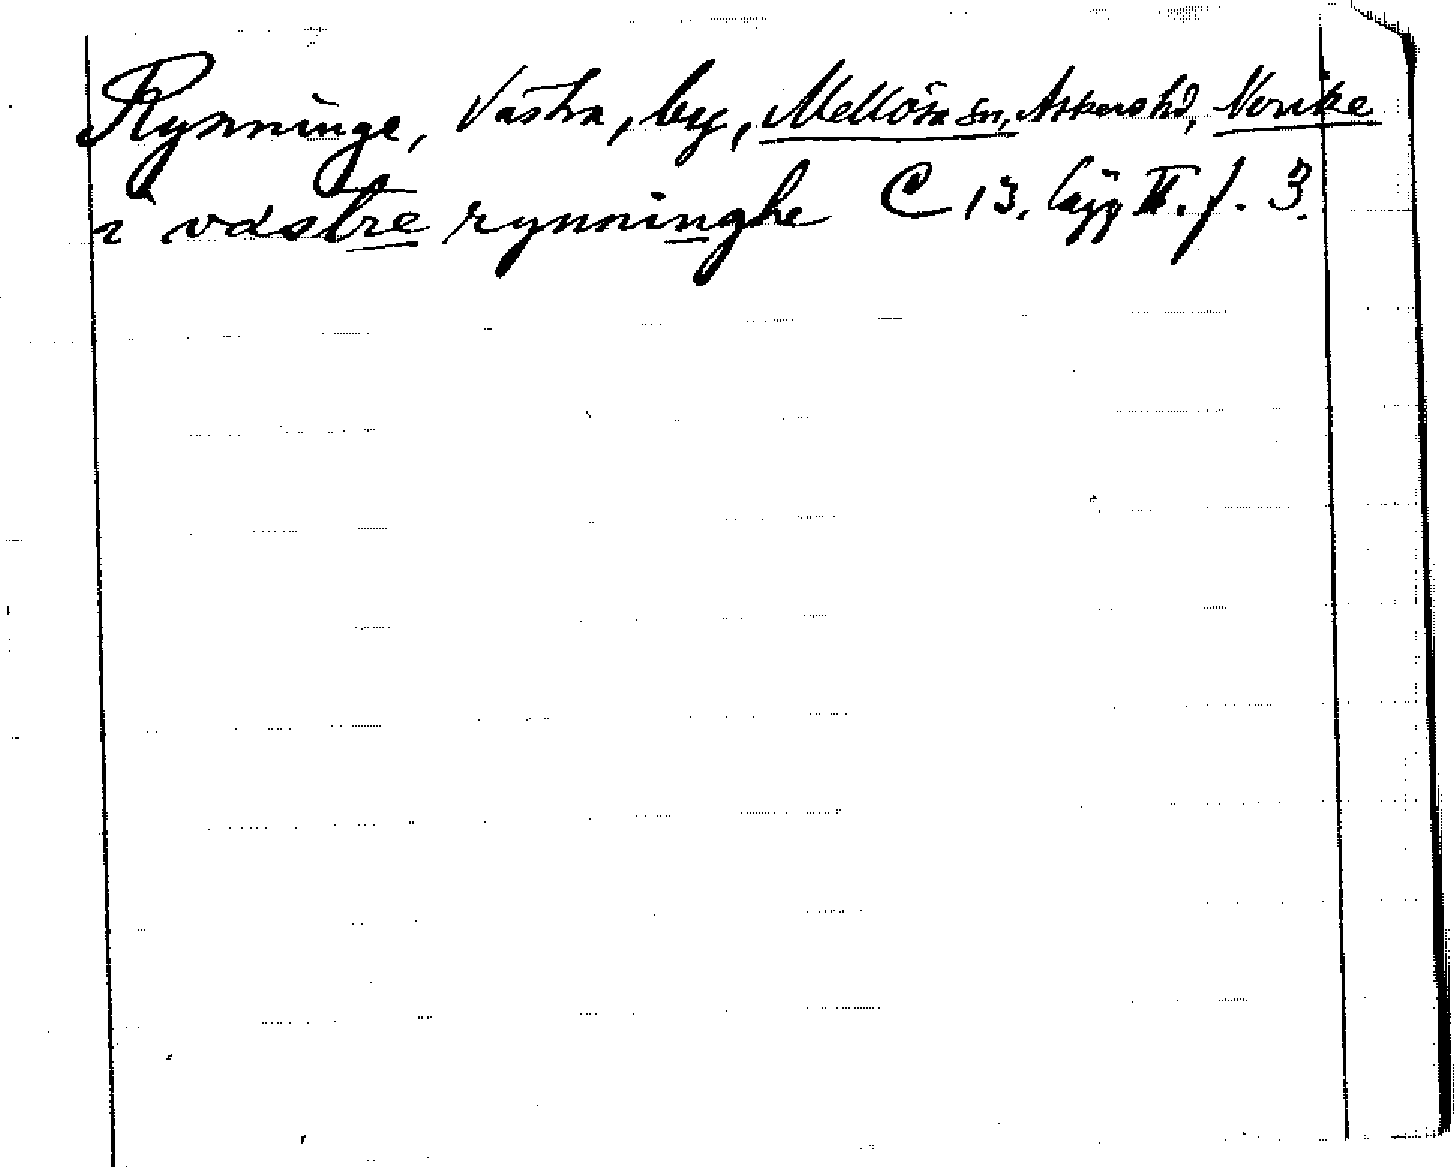 Rynninge, Västra, by, Mellösa sn, Askers hd, Närke
i västre rynninghe C 13. lägg II. f. 3.